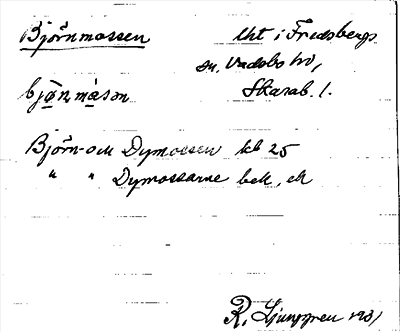 Björnmossen
Tkt i Fredsbergs
sn, Vadsbo hd,
Skarab. l.
bjø̀ɳmåsən
Björn- och Dymossen kb 25
" " Dymossarne bek, ek
R. Ljunggren 1931